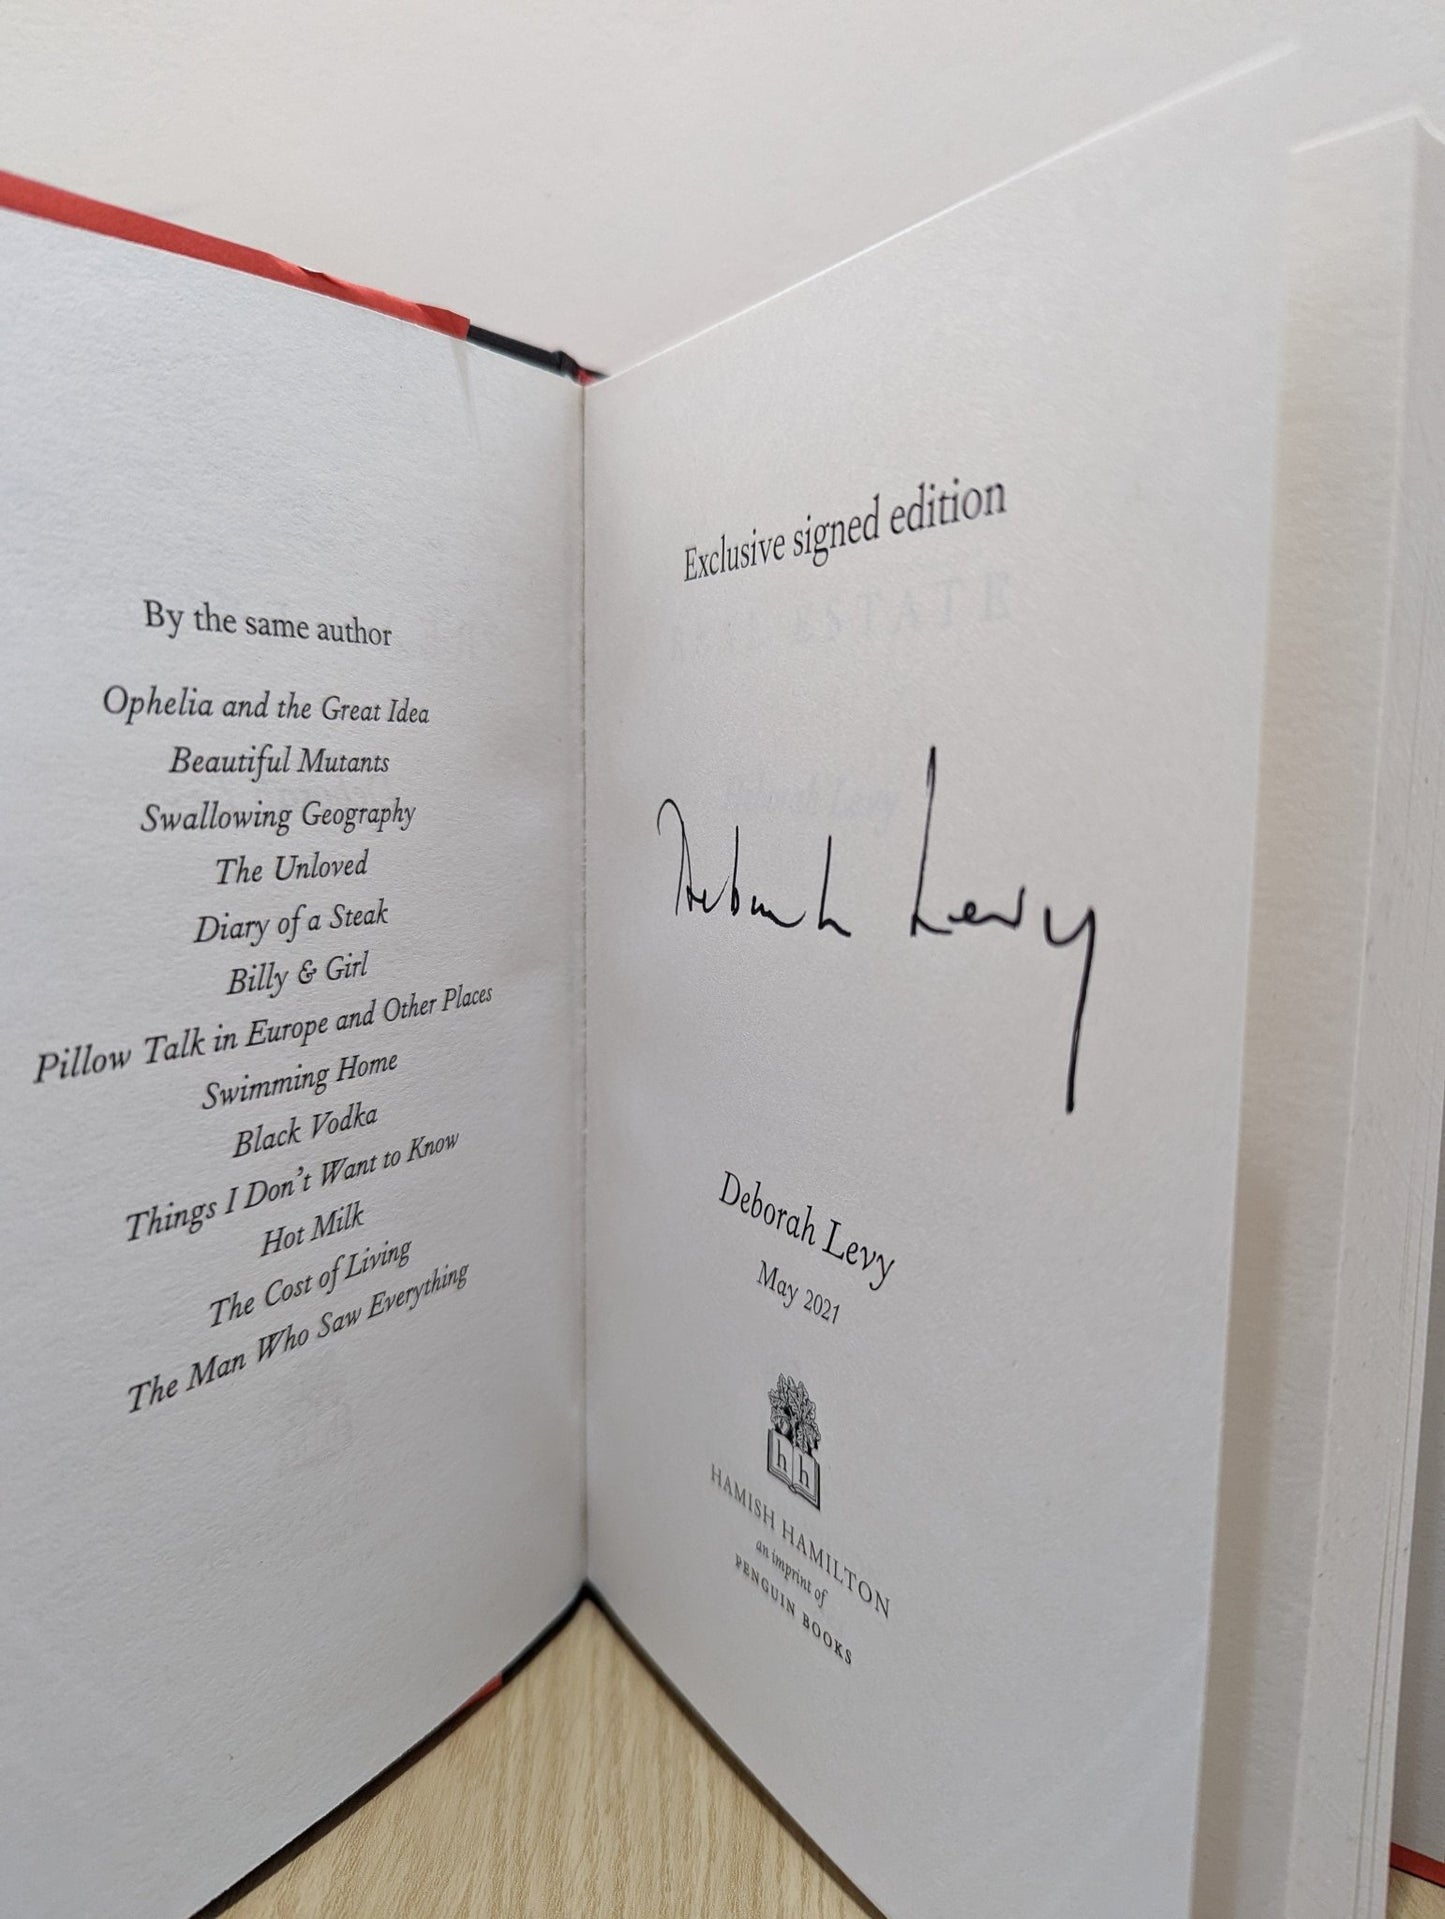 By the same author
Ophelia and the Great Idea
Beautiful Mutants
Swallowing Geography
The Unloved
Diary of a Steak
Billy & Girl
Pillow Talk in Europe and Other Places
Swimming Home
Black Vodka
Things I Don't Want to Know
Hot Milk
The Cost of Living
The Man Who Saw Everything
Exclusive signed edition
Deborah Levy
Deborah Levy
May 2021
h h
HAMISH HAMILTON
an imprint of
PENGUIN BOOKS